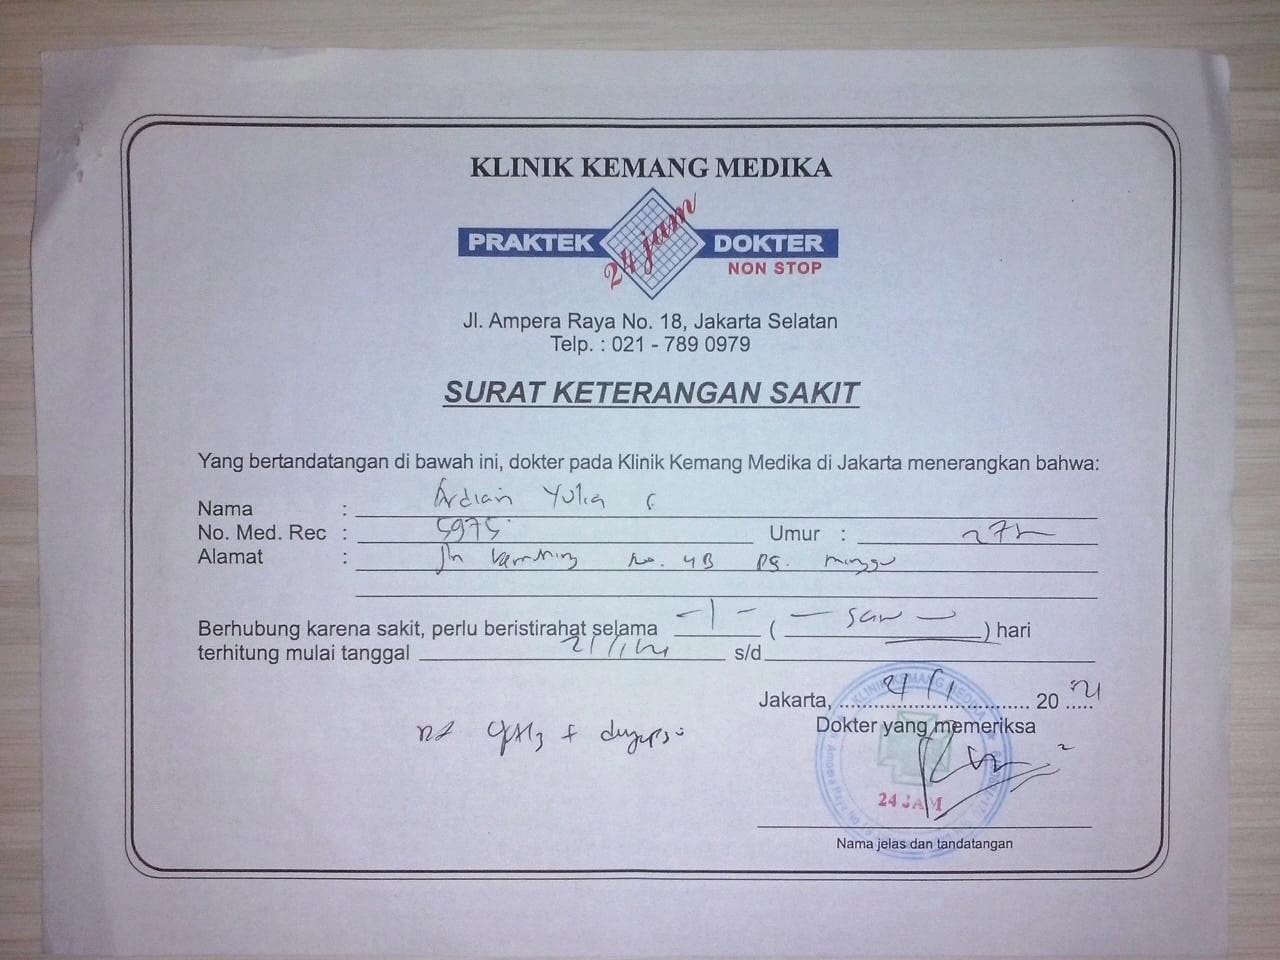 KLINIK KEMANG MEDIKA
PRAKTEK 24 jam DOKTER
NON STOP
Jl. Ampera Raya No. 18, Jakarta Selatan
Telp. : 021 - 789 0979
SURAT KETERANGAN SAKIT
Yang bertandatangan di bawah ini, dokter pada Klinik Kemang Medika di Jakarta menerangkan bahwa:
Nama : Ardian Yulia
No. Med. Rec : 5975 Umur :
Alamat : No. 4B
Berhubung karena sakit, perlu beristirahat selama - 1 - ( ) hari
terhitung mulai tanggal s/d
Jakarta, 21/1 20 21
Dokter yang memeriksa
KLINIK KEMANG MEDIKA
24 JAM
Nama jelas dan tandatangan